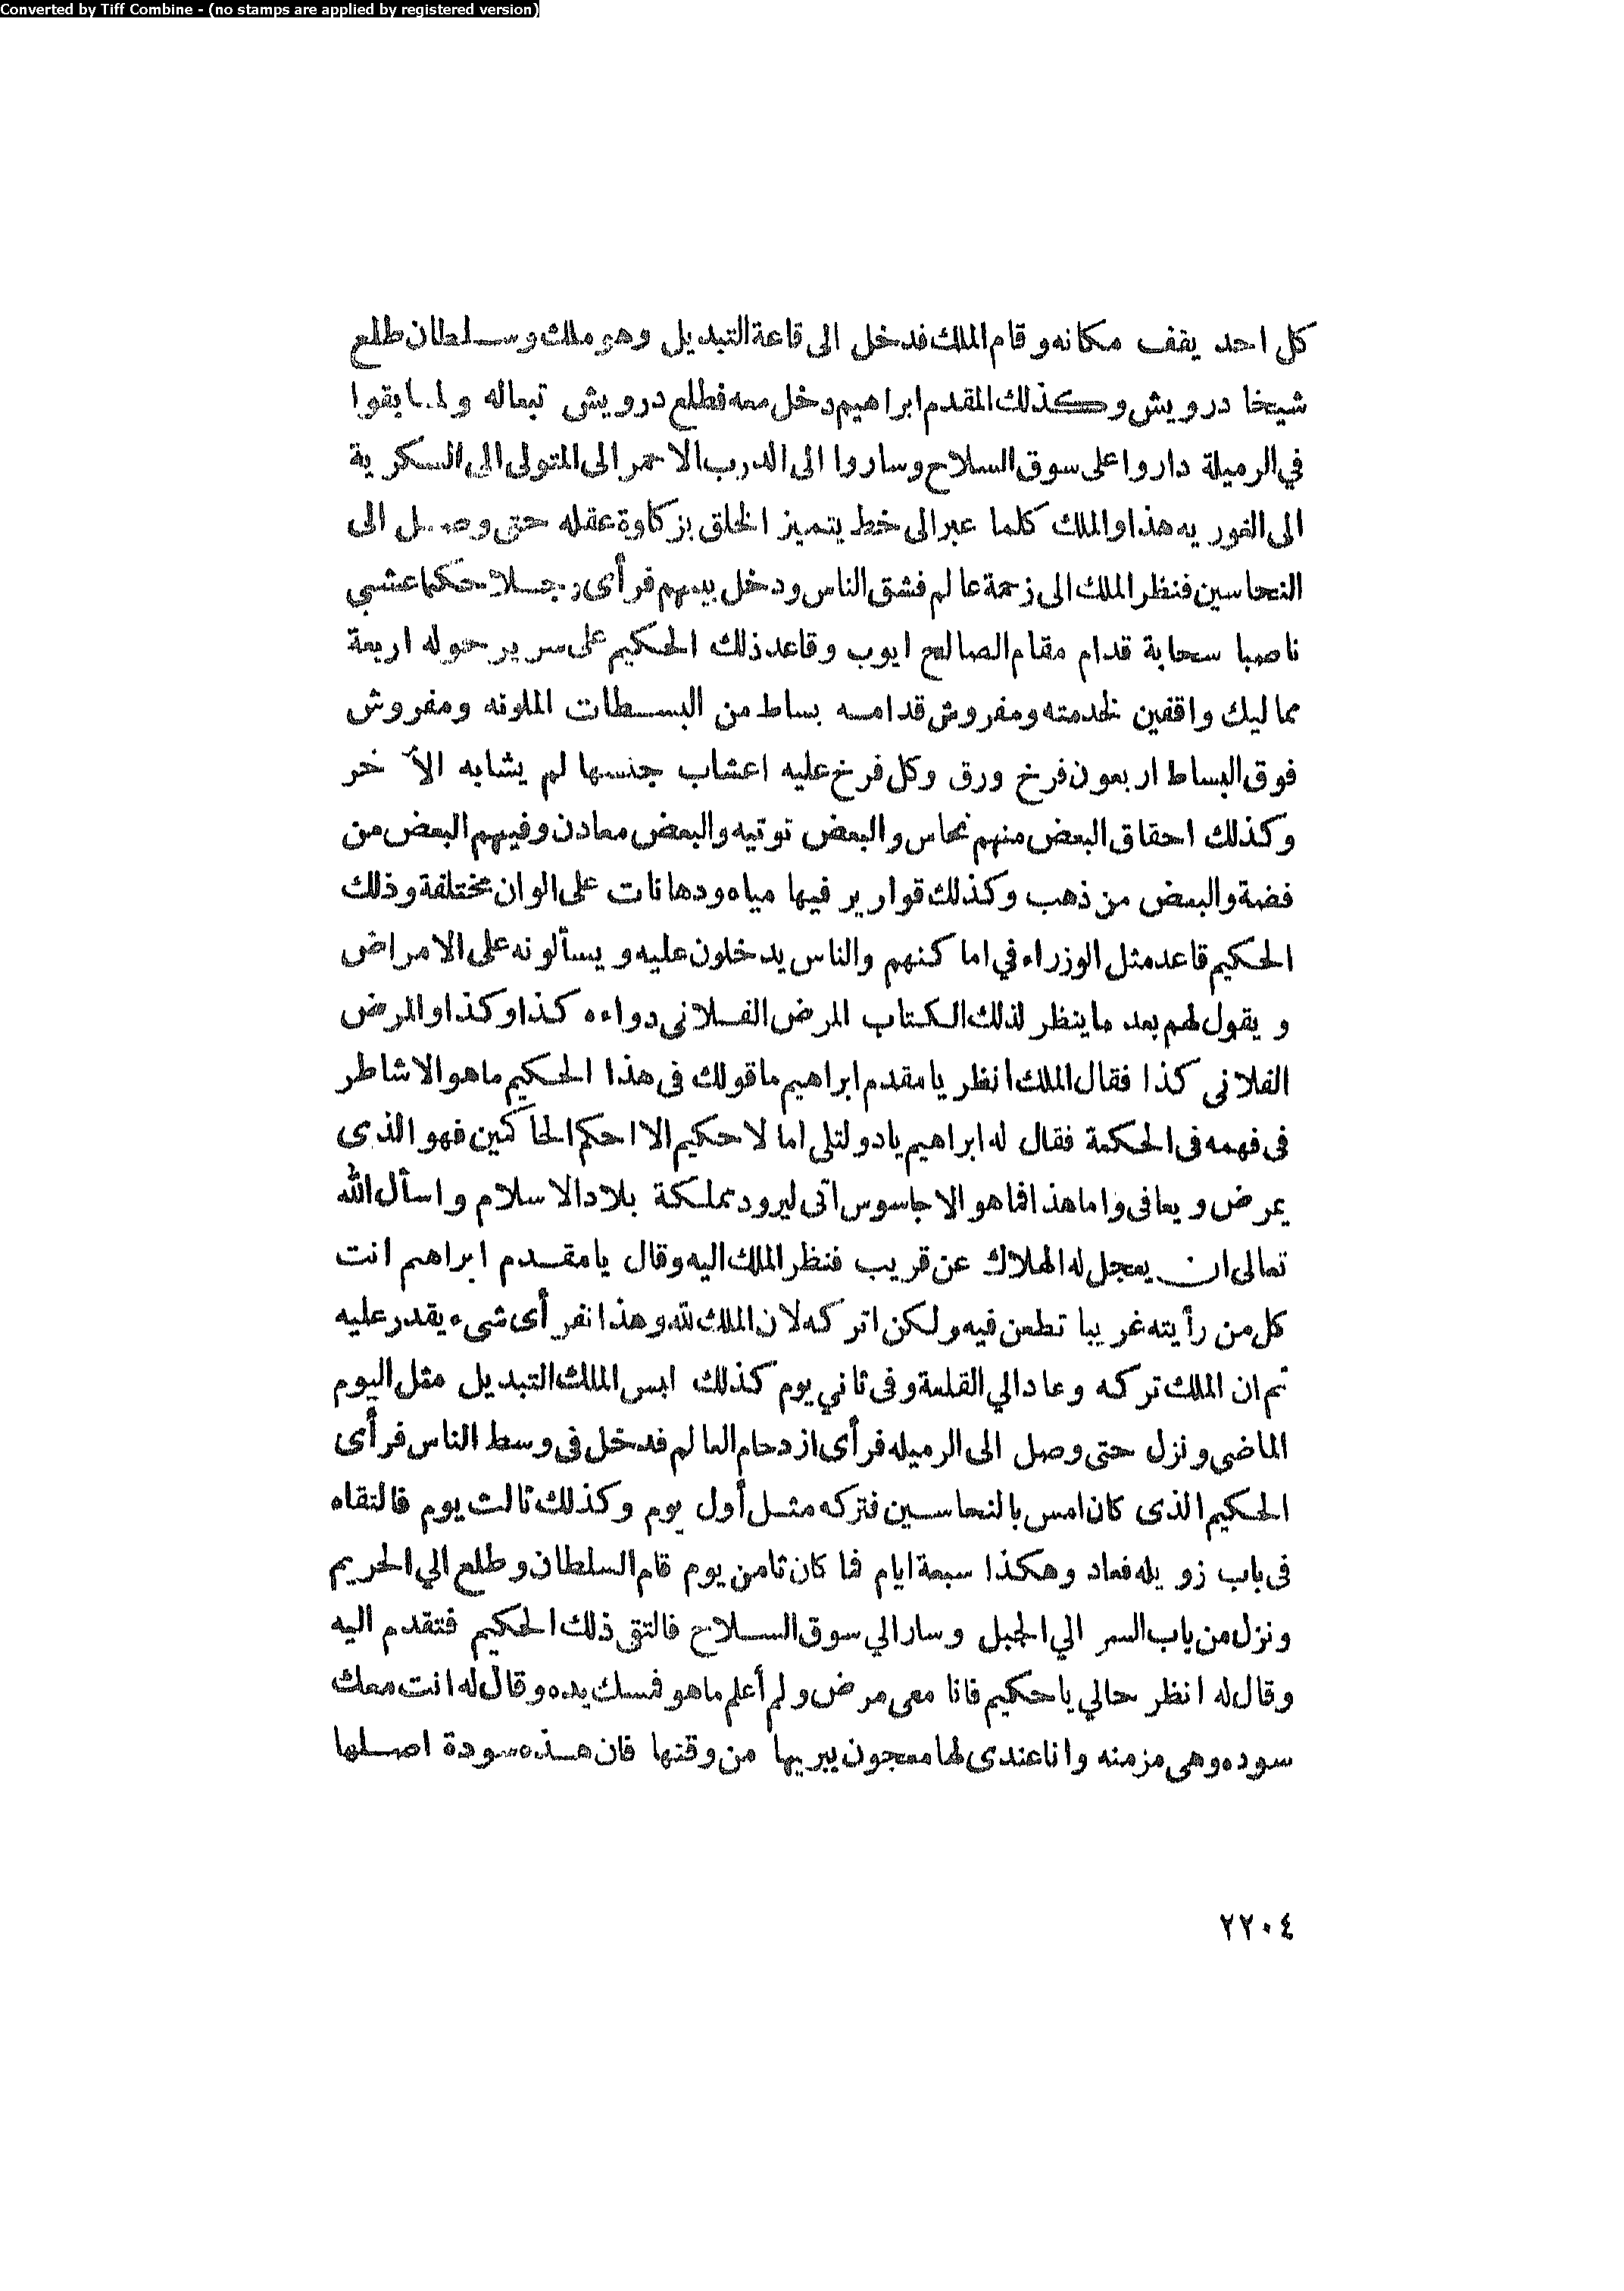 Converted by Tiff Combine - (no stamps are applied by registered version)
كل احد يقف مكانه وقام الملك فدخل الى قاعة التبديل وهو ملك وسلطان طلع
شيخا درويش وكذلك المقدم ابراهيم دخل معه فطلع درويش تبعاله ولما بقوا
في الرميلة داروا على سوق السلاح وساروا الى الدرب الاحمر الى المتولى الى السكرية
الى الغوريه هذا والملك كلما عبر الى خط يتميز الخلق بزكاوة عقله حتى وصل الى
النحاسين فنظر الملك الى زحمة عالم فشق الناس ودخل بينهم فرأى رجلا حكيما عشبي
ناصبا سحابة قدام مقام الصالح ايوب وقاعد ذلك الحكيم على سرير حوله اربعة
مماليك واقفين لخدمته ومفروش قدامه بساط من البسطات الملونه ومفروش
فوق البساط اربعون فرخ ورق وكل فرخ عليه اعشاب جنسها لم يشابه الآخر
وكذلك احقاق البعض منهم نحاس والبعض توتيه والبعض معادن وفيهم البعض من
فضة والبعض من ذهب وكذلك قوارير فيها مياه ودهانات على الوان مختلفة وذلك
الحكيم قاعد مثل الوزراء في اماكنهم والناس يدخلون عليه ويسألونه على الامراض
ويقول لهم بعد ما ينظر لذلك الكتاب المرض الفلانى دواءه كذا وكذا والمرض
الفلانى كذا فقال الملك انظر يا مقدم ابراهيم ما قولك فى هذا الحكيم ما هو الا شاطر
فى فهمه فى الحكمة فقال له ابراهيم يا دولتلى اما لا حكيم الا احكم الحاكمين فهو الذى
يمرض ويعافى واما هذا فما هو الا جاسوس اتى ليرود مملكة بلاد الاسلام واسأل الله
تعالى ان يعجل له الهلاك عن قريب فنظر الملك اليه وقال يا مقدم ابراهم انت
كل من رأيته غريبا تطعن فيه ولكن اتركه لان الملك لله وهذا نفر أى شىء يقدر عليه
ثم ان الملك تركه وعاد الي القلعة وفى ثاني يوم كذلك لبس الملك التبديل مثل اليوم
الماضي ونزل حتى وصل الى الرميله فرأى ازدحام العالم فدخل فى وسط الناس فرأى
الحكيم الذى كان امس بالنحاسين فتركه مثل أول يوم وكذلك ثالث يوم فالتقاه
فى باب زويله فعاد وهكذا سبعة ايام فما كان ثامن يوم قام السلطان وطلع الي الحريم
ونزل من باب السر الي الجبل وسار الي سوق السلاح فالتقى ذلك الحكيم فتقدم اليه
وقال له انظر حالي يا حكيم فانا معى مرض ولم أعلم ما هو فمسك يده وقال له انت معك
سوده وهى مزمنه وانا عندى لها معجون يبريها من وقتها فان هذه سودة اصلها
٢٢٠٤